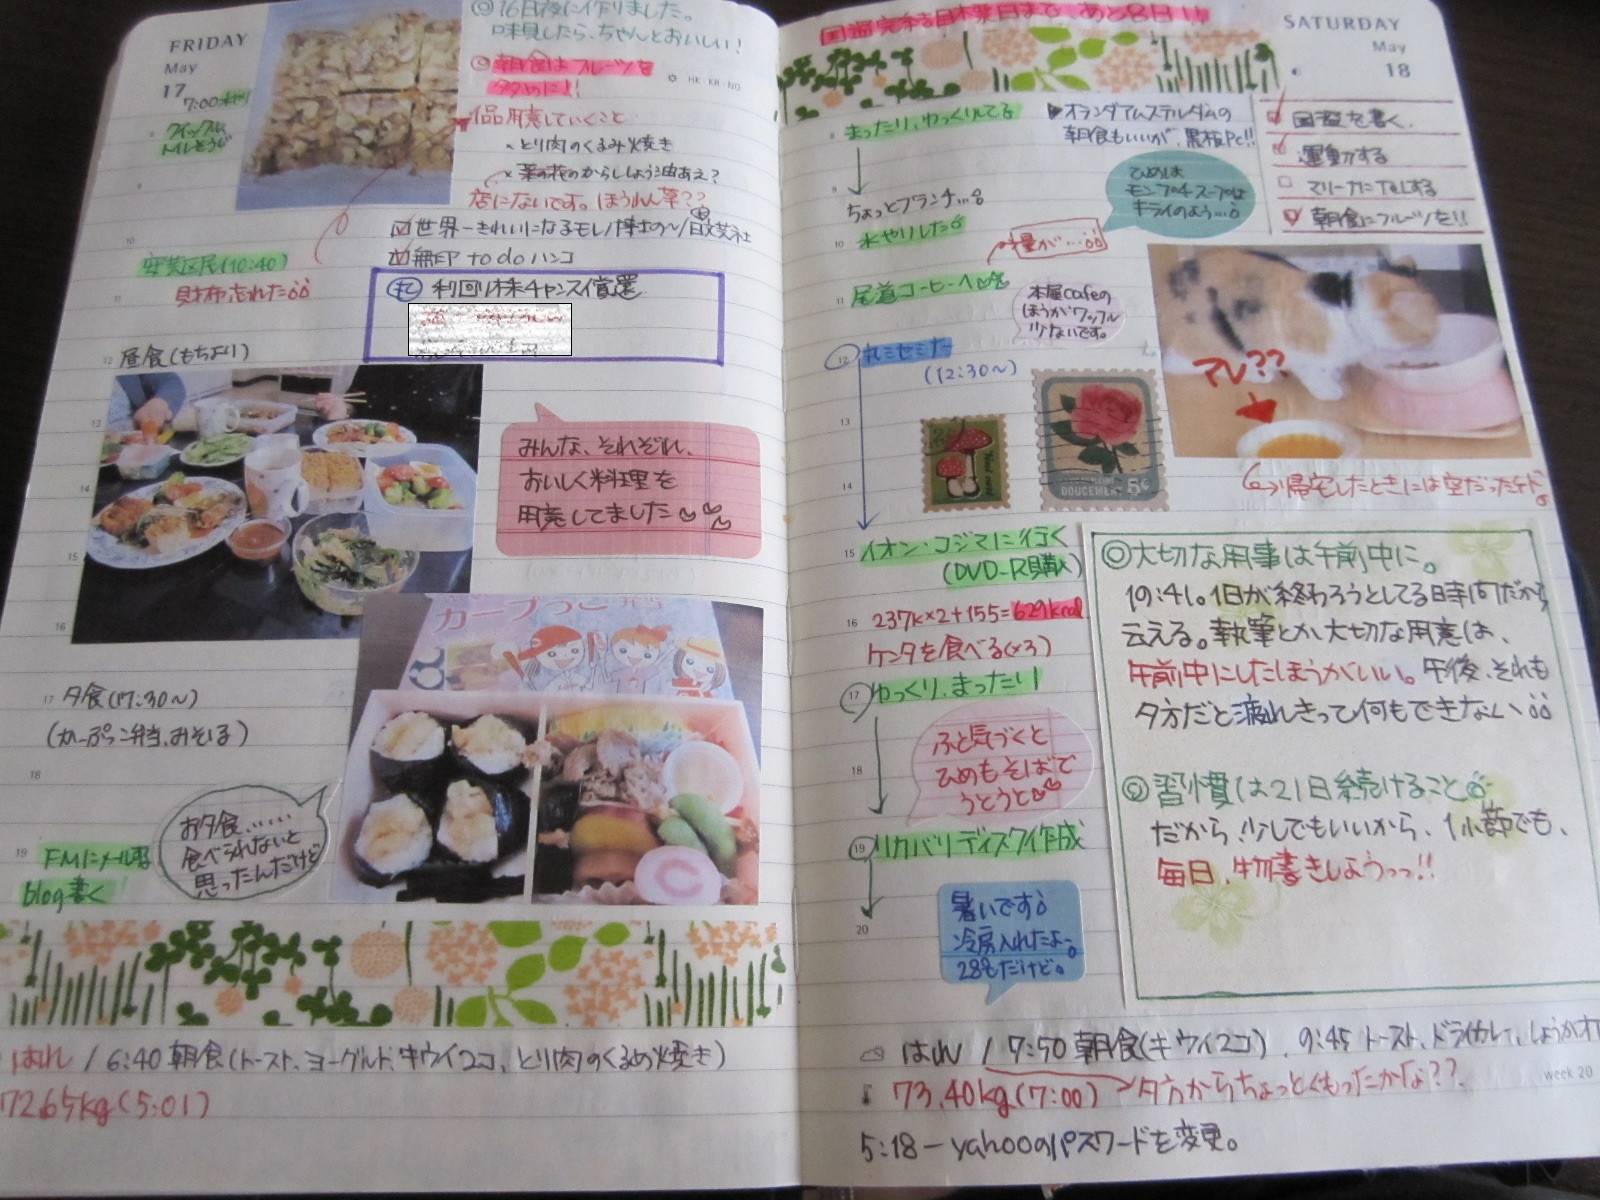 FRIDAY
May
17
7:00
クイックル
◎16日夜に作りました。
味見したら、ちゃんとおいしい！
◎朝食はフルーツを
1品用意していくこと
×とり肉のくるみ焼き
×菜の花のからししょう油あえ？
店にないです。ほうれん草??
無印 to do ハンコ
(10:40)
財布忘れた
12 昼食(もちより)
みんな、それぞれ、
おいしく料理を
用意してました
13
14
15
16
17 夕食(17:30～)
(かーぷっこ弁当、みそしる)
18
お夕食……
食べられないと
思ったんだけど
19
blog書く
はれ / 6:40 朝食(トースト、ヨーグルト、キウイ2コ、とり肉のくるみ焼き)
72.65kg(5:01)
SATURDAY
May
18
まったり、ゆっくりしてる
オランダアムステルダムの
ちょっとブランチ…
10 水やりした
ひめは
モンプチスープは
キライのよう…
量が…
11 尾道コーヒーへ
本屋cafeの
ほうがワッフル
少ないです。
12 セミナー
(12:30～)
国沼を書く
運動する
マリーナにTELする
朝食にフルーツを!!
アレ??
帰宅したときには空だったケド
DOUCEMENT 5c
13
14
15 イオン・コジマに行く
(DVD-R購入)
16 237k×2+155=629kcal
ケンタを食べる(×3)
17 ゆっくり、まったり
ふと気づくと
ひめもそばで
うとうと
18
19 リカバリディスク作成
暑いです
冷房入れたよ。
28℃だけど。
20
◎大切な用事は午前中に。
19:41。1日が終わろうとしてる時間だから
云える。執筆とか大切な用意は、
午前中にしたほうがいい。午後、それも
夕方だと疲れきって何もできない
◎習慣は21日続けること
だから、少しでもいいから、1小節でも、
毎日、物書きしようっっ!!
はれ / 7:50 朝食(キウイ2コ)、9:45 トースト、ドライカレー、
73.40kg(7:00) 夕方からちょっとくもったかな??
week 20
5:18ーyahooのパスワードを変更。